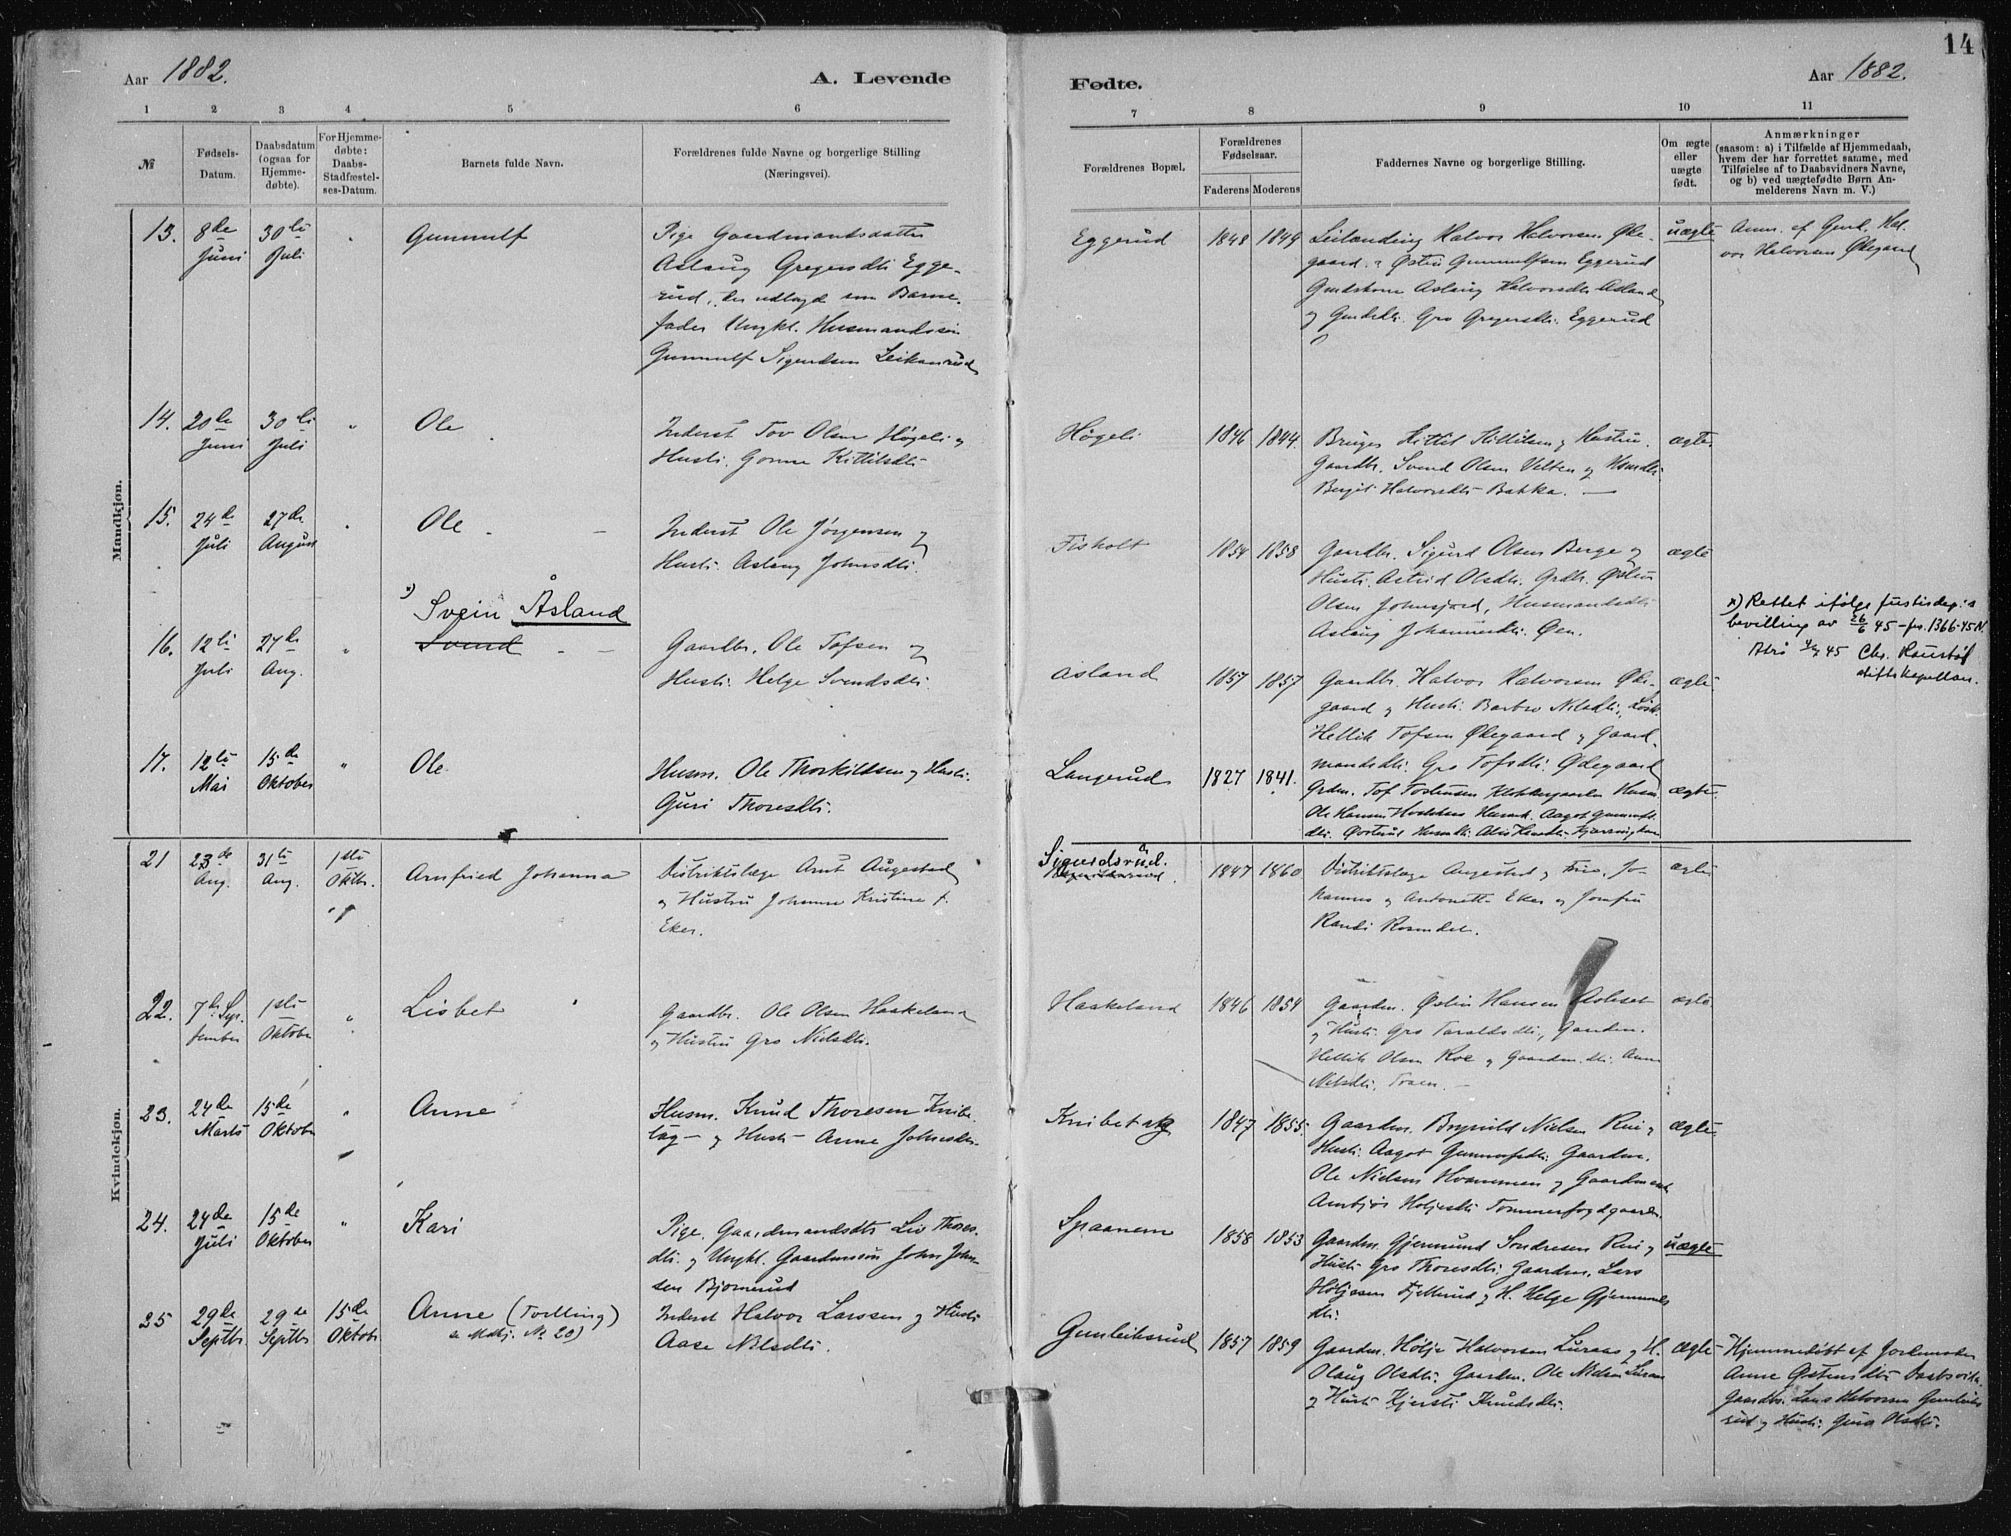 14
Aar 1882.
A. Levende
Fødte.
Aar 1882.
1
2
3
4
5
6
7
8
9
10
11
№
Fødsels-
Datum.
Daabsdatum
(ogsaa for
Hjemme-
døbte).
For Hjemme-
døbte:
Daabs-
Stadfæstel-
ses-Datum.
Barnets fulde Navn.
Forældrenes fulde Navne og borgerlige Stilling
(Næringsvei).
Forældrenes Bopæl.
Forældrenes
Fødselsaar.
Faderens
Moderens
Faddernes Navne og borgerlige Stilling.
Om ægte
eller
uægte
født.
Anmærkninger
(saasom: a) i Tilfælde af Hjemmedaab,
hvem der har forrettet samme, med
Tilføielse af to Daabsvidners Navne,
og b) ved uægtefødte Børn An-
melderens Navn m. V.)
Mandkjøn.
13.
8de
Juni
30te
Juli
Gunnulf
Pige Gaardmandsdatter
Aslaug Gregersdtr Egge-
rud, der udlagde som Barne-
fader Ungkl. Husmandssøn
Gunnulf Sigurdsen Leikanrud
Eggerud
1848 1849
Leilænding Halvor Halvorsen Øde-
gaard, Østen Gunnulfsen Eggerud
Gmdskone Aslaug Halvorsdtr Aasland
og Gmdsdtr. Gro Gregersdtr. Eggerud
uægte
Anm. af Gmd. Hal-
vor Halvorsen Ødegaard
14.
20de
Juni
30te
Juli
Ole
Inderst Tov Olsen Høgeli og
Hustr. Gonne Kittilsdtr
Høgeli
1846 1844
Bruger Kittil Kittilsen og Hustru.
Gaardbr. Svend Olsen Velten og Hsmdtr.
Bergit Halvorsdtr Bakka.
ægte.
15.
24de
Juli
27de
August
Ole
Inderst Ole Jørgensen og
Hustr. Aslaug Johnsdtr.
Fisholt
1854 1858
Gaardbr. Sigurd Olsen Berge og
Hustr. Astrid Olsdtr. Grdbr. Østen
Olsen Johnsjord, Husmandsdtr
Aslaug Johannesdtr. Øen.
ægte
16.
12te
Juli
27de
Aug.
x) Svein Åsland
Svend
Gaardbr. Ole Tofsen og
Hustr. Helge Svendsdtr.
Aasland
1857 1857
Gaardbr. Halvor Halvorsen Øde-
gaard og Hustr. Barbro Nilsdtr.,
Hellik Tofsen Ødegaard og Gaard-
mandsdtr. Gro Tofsdtr. Ødegaard
ægte
x) Rettet ifølge justisdep:s
bevilling av 26/6 45 - jnr. 1366-45 N.
45 Chr.
stiftskapellan.
17.
12te
Mai
15de
Oktober
Ole
Husm. Ole Thorkildsen og Hustr.
Guri Thoresdtr.
Langerud
1827 1841.
Grdm. Tof Torstensen Husm.
Ole Hansen Aagot Gunnulfs-
dtr.
ægte.
Kvindekjøn.
21
23de
Aug.
31te
Aug.
1ste
Oktbr.
Arnfried Johanna
Distriktslæge Arnt Augestad
og Hustru Johanne Kristine f.
Eker.
Sigurdsrud.
1847 1860
Distriktslæge Augestad og Frue, Jo-
hannes og Antonette Eker og Jomfru
Randi Rosendal.
ægte
22.
7de Sep-
tember
1ste
Oktober
Lisbet
Gaardbr. Ole Olsen Haakeland
og Hustru Gro Nielsdtr.
Haakeland
1846 1854
Gaardm. Østen Hansen
og Hustr. Gro Taraldsdtr., Gaardm.
Hellik Olsen Roe og Gaardm.dtr. Anne
Nilsdtr. Traen.
ægte
23.
24de
Marts
15de
Oktober
Anne
Husm. Knud Thoresen Knibe-
tag og Hustr. Anne Johnsdtr.
Knibetag
1847 1855.
Gaardm. Brynild Nielsen Rui og
Hustr. Aagot Gunnulfsdtr. Gaardm.
Ole Nielsen Hvammen og Gaardmdtr
Ambjør Holjesdtr Tommerfogdgaarden.
ægte
24.
24de
Juli
15de
Oktober
Kari
Pige, Gaardmandsdtr Liv Thores-
dtr. og Ungkl. Gaardmssøn John John-
sen Bjørnerud
Spaanem
1858 1853
Gaardm. Gjermund Sondresen Rui og
Hustr Gro Thoresdtr. Gaardm. Lars
Holjesen Fjellerud og H. Helge Gjermunds-
dtr.
uægte
25
29de
Septbr.
29de
Septbr
15de
Oktobr.
Anne (Tvilling)
se Mdkj. № 20)
Inderst Halvor Larssen og Hustr.
Aase Nilsdtr.
Gunleiksrud
1857 1859
Gaardm. Holje Halvorsen Luraas og H.
Olaug Olsdtr. Gaardm. Ole Nielsen Luraas
og Hustr Kjersti Knudsdtr.
ægte
Hjemmedøbt af Jordmoder
Anne Østensdtr Daabsvidn.
Gaardbr. Lars Halvorsen Gunleiks-
rud og Hustr. Guro Olsdtr.